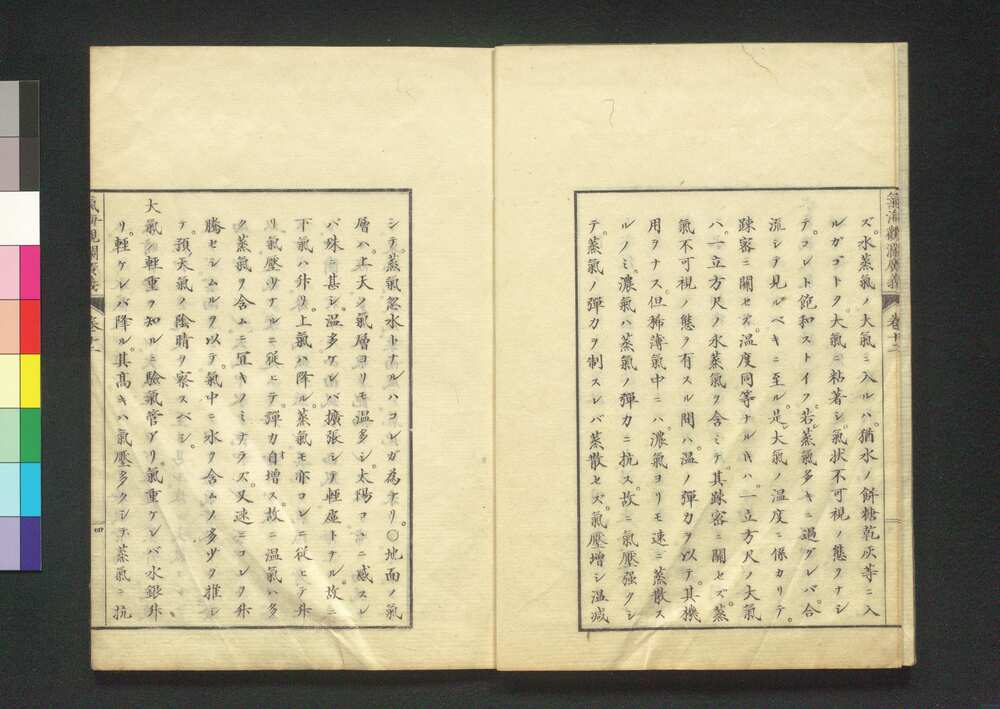 氣海觀瀾廣義 卷十二
ズ。水蒸氣ノ大氣ニ入ルハ。猶水ノ餅糖乾灰等ニ入
ルガゴトク。大氣ニ粘著シ。氣状不可視ノ態ヲナシ
テ。コレト飽和ストイフ。若蒸氣多キニ過グレバ。合
流シテ見ルベキニ至ル。是大氣ノ温度ニ係カリテ。
踈密ニ關セズ。温度同等ナルキハ。一立方尺ノ大氣
ハ。一立方尺ノ水蒸氣ヲ含ミテ。其踈密ニ關セズ。蒸
氣不可視ノ態ヲ有スル間ハ。温ノ彈力ヲ以テ。其機
用ヲナス。但稀薄氣中ニハ。濃氣ヨリモ速ニ蒸散ス
ルノミ。濃氣ハ蒸氣ノ彈力ニ抗ス。故ニ氣壓强クシ
テ。蒸氣ノ彈力ヲ制スレバ蒸散セズ。氣壓増シ温減
シテ。蒸氣忽水トナルハコレガ為ナリ。○地面ノ氣
層ハ。上天ノ氣層ヨリモ温多シ。太陽コレニ感スレ
バ殊ニ甚シ。温多ケレバ擴張シテ輕虚トナル。故ニ
下氣ハ升リ。上氣ハ降ル。蒸氣モ亦コレニ従ヒテ升
リ。氣壓少ナルニ従ヒテ。彈力自増ス。故ニ温氣ハ多
ク蒸氣ヲ含ムニ宜キノミナラズ。又速ニコレヲ升
騰セシムルヲ以テ。氣中ニ水ヲ含ムノ多少ヲ推シ
テ。預メ天氣ノ陰晴ヲ察スベシ。
大氣ノ輕重ヲ知ルニ驗氣管アリ。氣重ケレバ水銀升
リ。輕ケレバ降ル。其高キハ氣壓多クシテ蒸氣ニ抗
氣海觀瀾廣義 卷十二 四